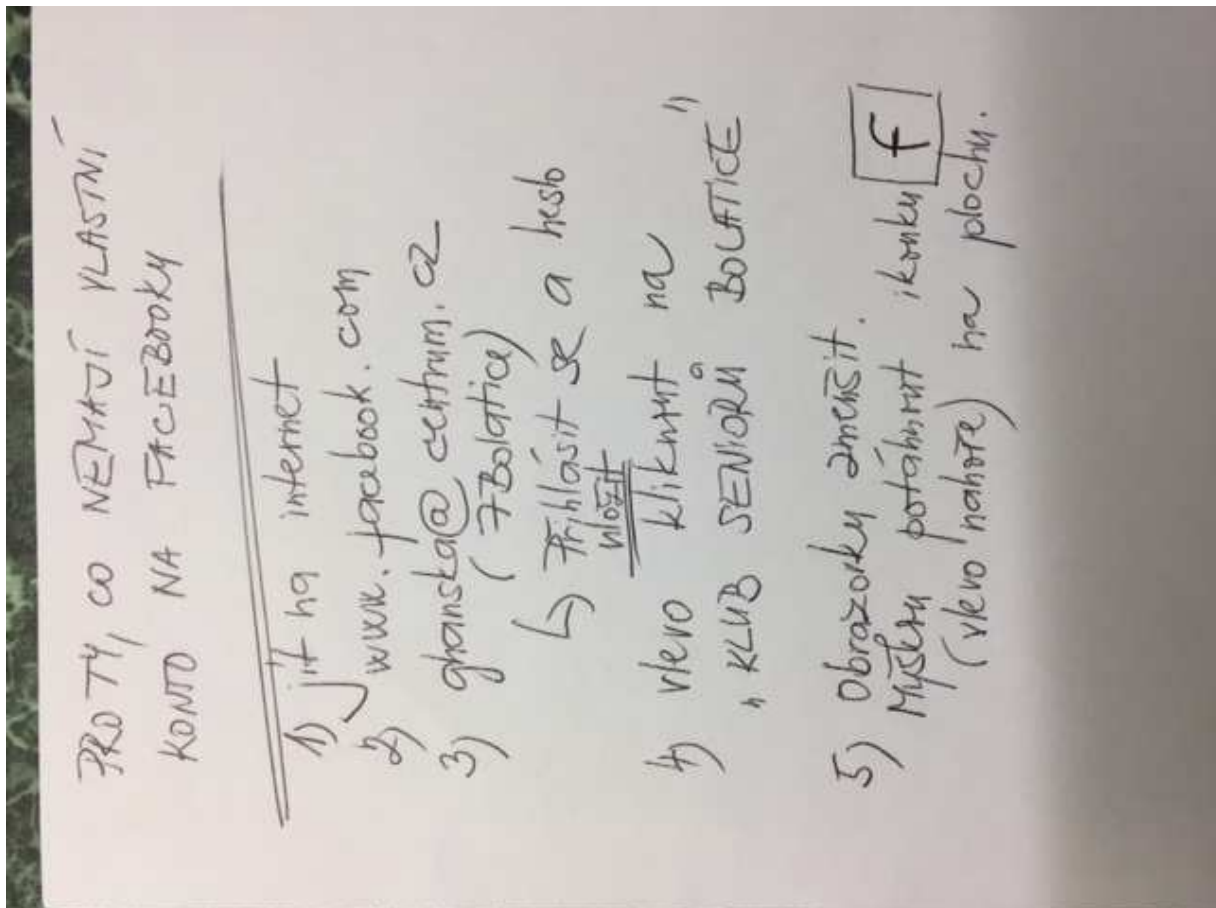 PRO TY, CO NEMAJÍ VLASTNÍ
KONTO NA FACEBOOKU
1) jít na internet
2) www.facebook.com
3) ghanska@centrum.cz
(7Bolatice)
↳ Přihlásit se a heslo
uložit
4) vlevo kliknut na
„KLUB SENIORŮ BOLATICE"
5) Obrazovku zmenšit.
Myšlenu potáhnout ikonku f
(vlevo nahoře) na plochu.